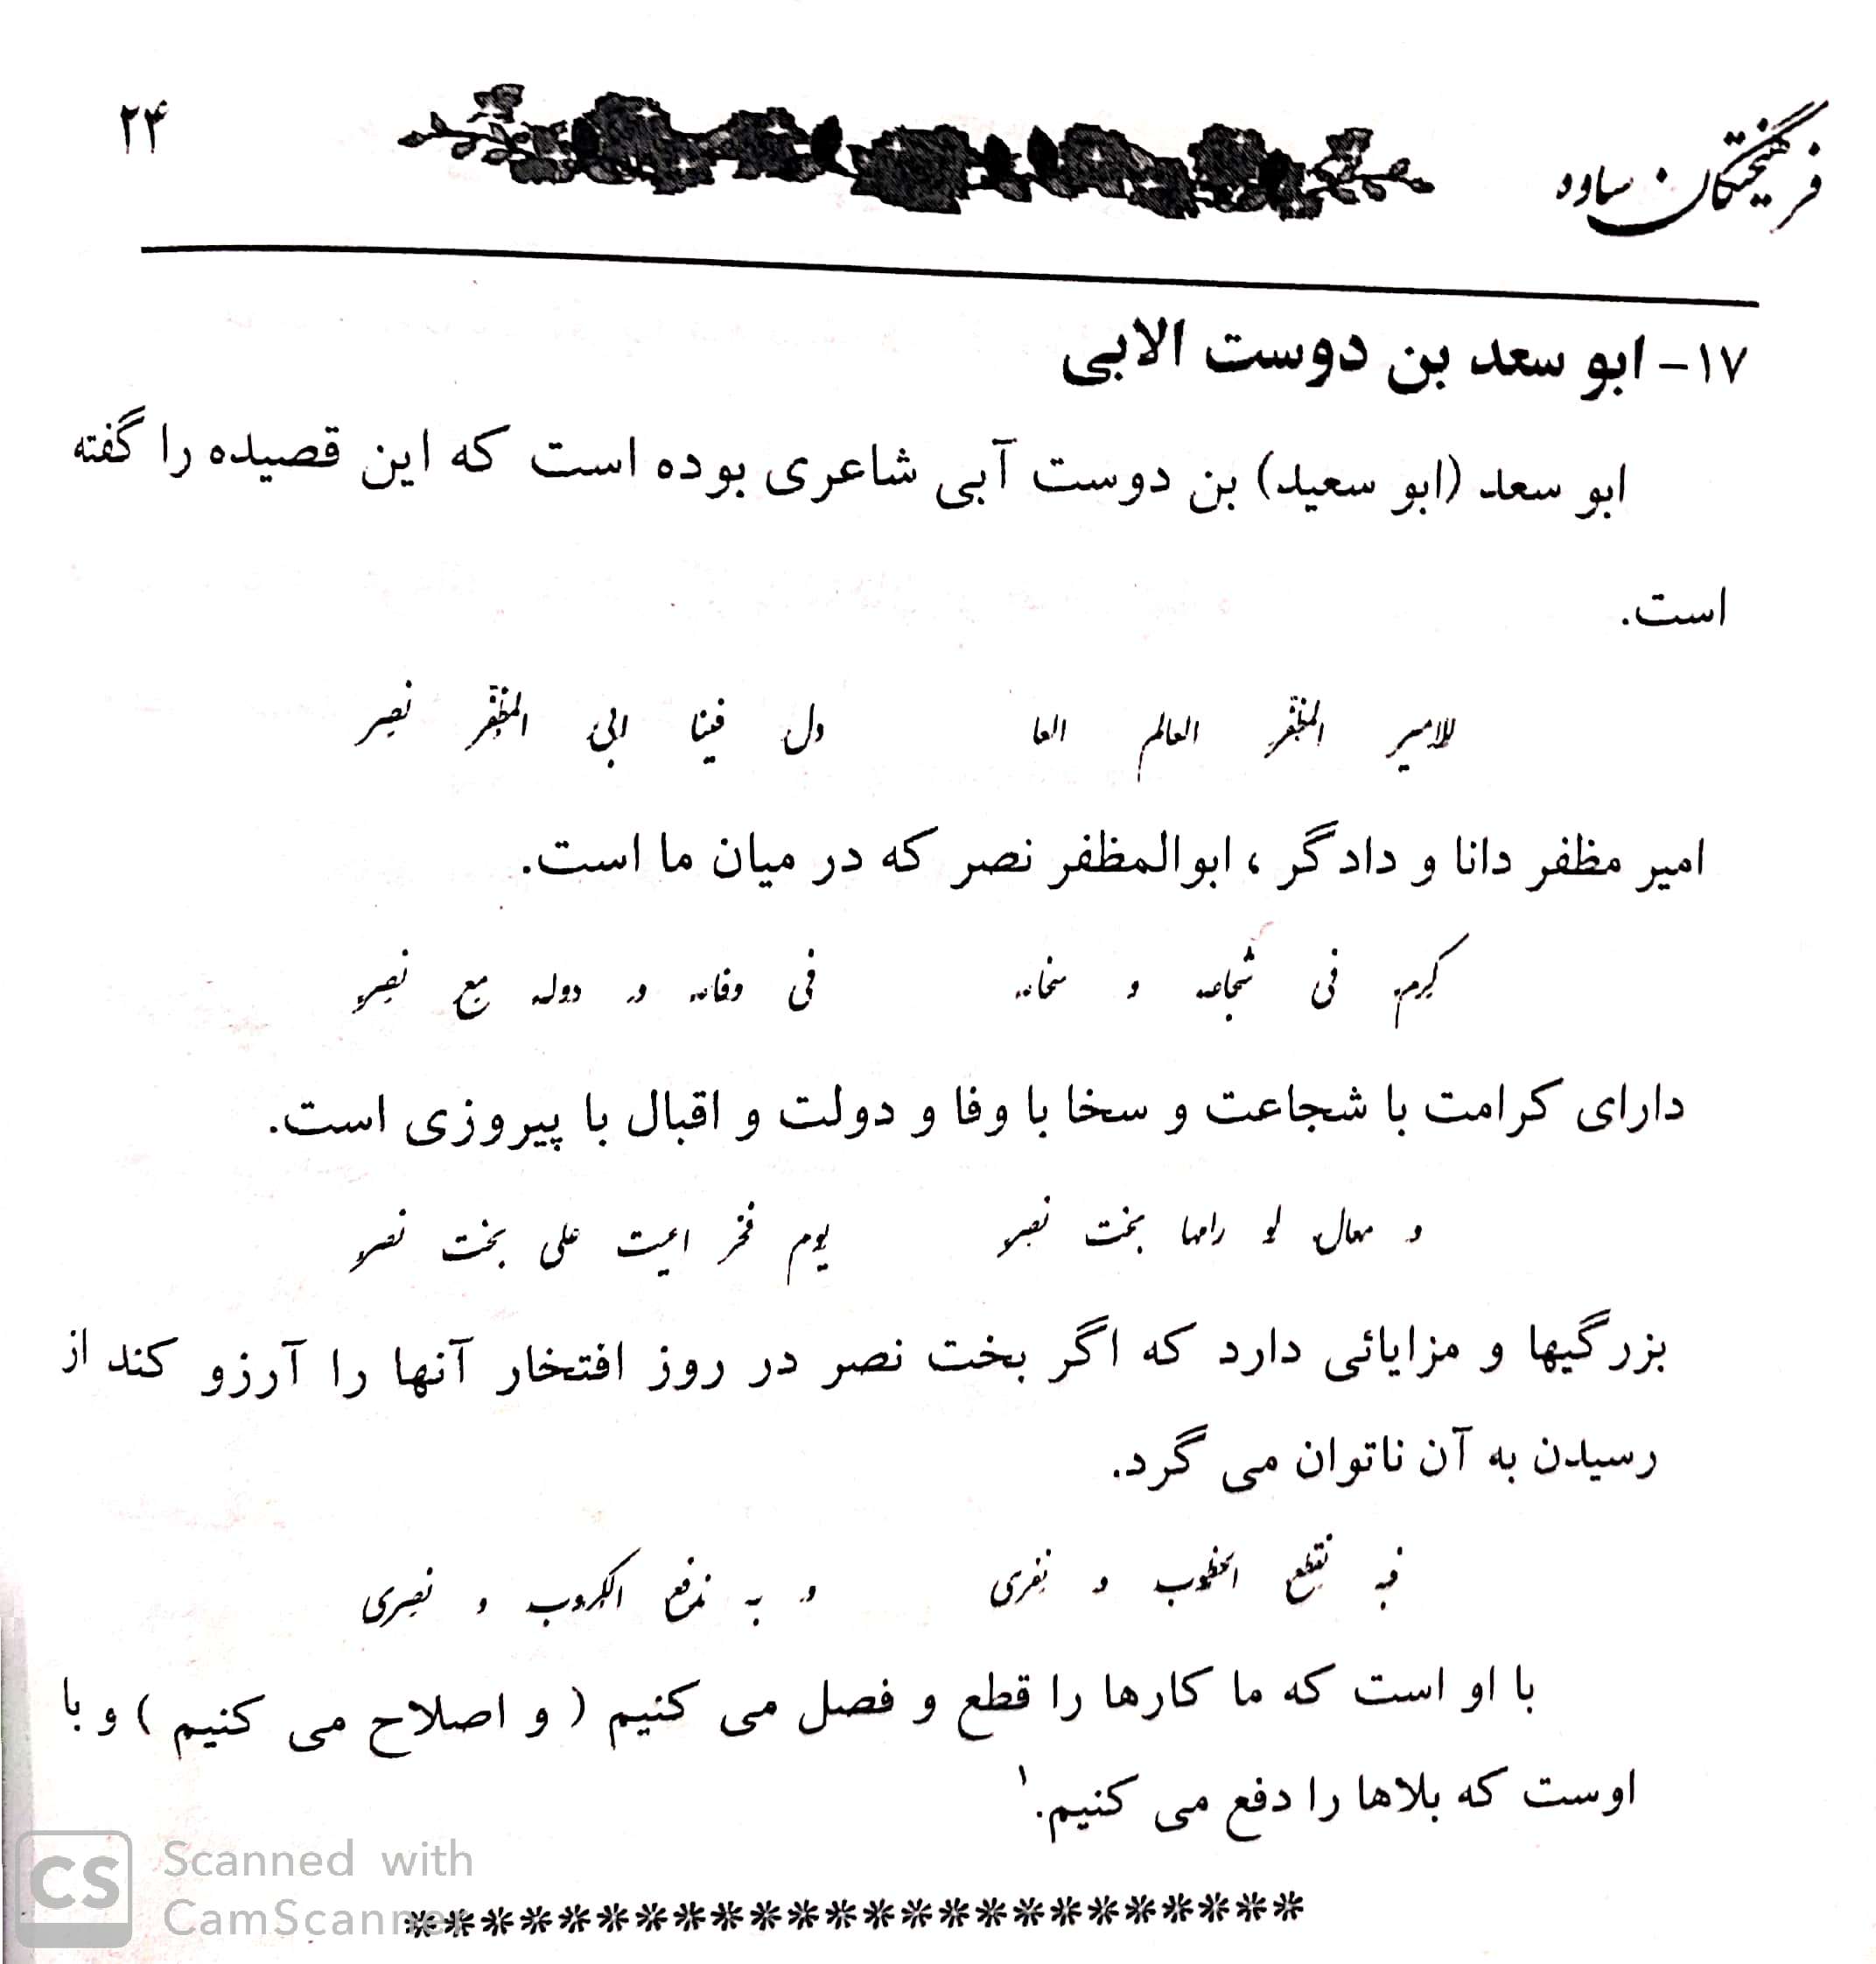 فرهیختگان ساوه
۲۴
۱۷- ابو سعد بن دوست الابی
ابو سعد (ابو سعید) بن دوست آبی شاعری بوده است که این قصیده را گفته
است.
للامیر المظفّر العالم العا دل فینا ابی المظفّر نصر
امیر مظفر دانا و دادگر ، ابوالمظفر نصر که در میان ما است.
کرم فی شجاعه و سخائه فی وفائه و دوله مع نصر
دارای کرامت با شجاعت و سخا با وفا و دولت و اقبال با پیروزی است.
و معال لو رامها بخت نصر یوم فخر اعیت علی بخت نصر
بزرگیها و مزایائی دارد که اگر بخت نصر در روز افتخار آنها را آرزو کند از
رسیدن به آن ناتوان می گرد.
فبه نقطع الخطوب و نفری و به ندفع الکروب و نصری
با او است که ما کارها را قطع و فصل می کنیم ( و اصلاح می کنیم ) و با
اوست که بلاها را دفع می کنیم.۱
CS Scanned with
CamScanner
************************